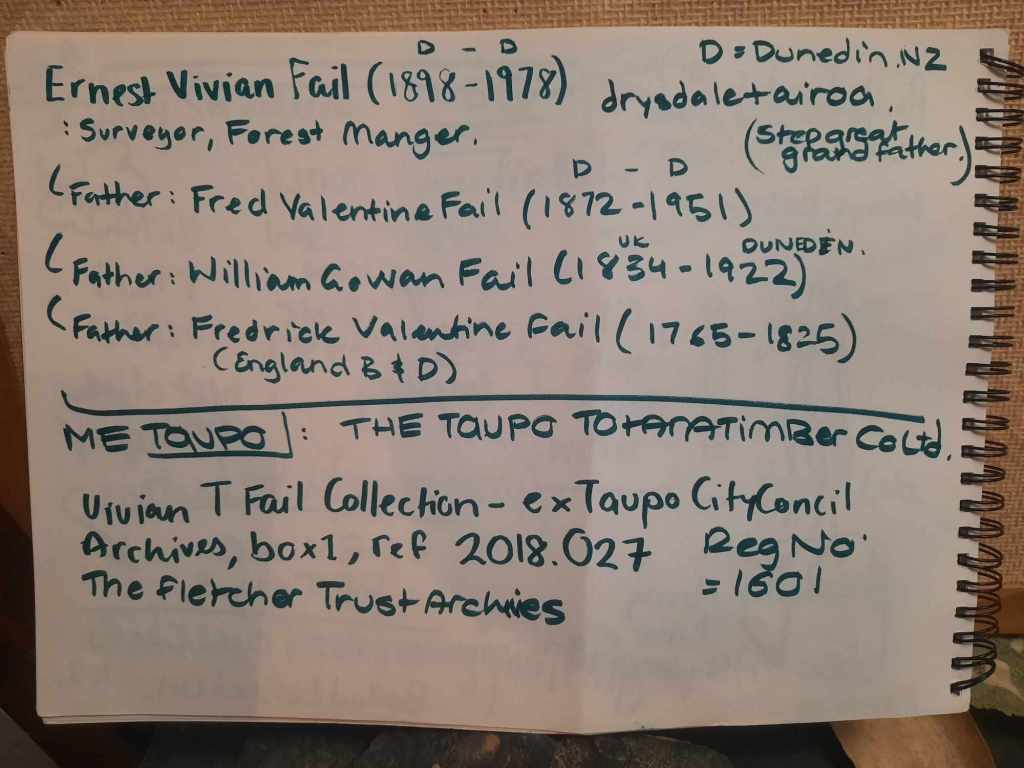 D - D
Ernest Vivian Fail (1898-1978)
D = Dunedin.NZ
drysdale+airoa.
: Surveyor, Forest Manger.
(Step great
grand father.)
D - D
Father: Fred Valentine Fail (1872-1951)
UK DUNEDIN.
Father: William Gowan Fail (1834-1922)
Father: Fredrick Valentine Fail (1765-1825)
(England B & D)
ME TAUPO : THE TAUPO TOtARATimBer Co Ltd.
Vivian T Fail Collection - ex Taupo City Concil
Archives, box1, ref 2018.027 Reg No.
= 1601
The Fletcher Trust Archives